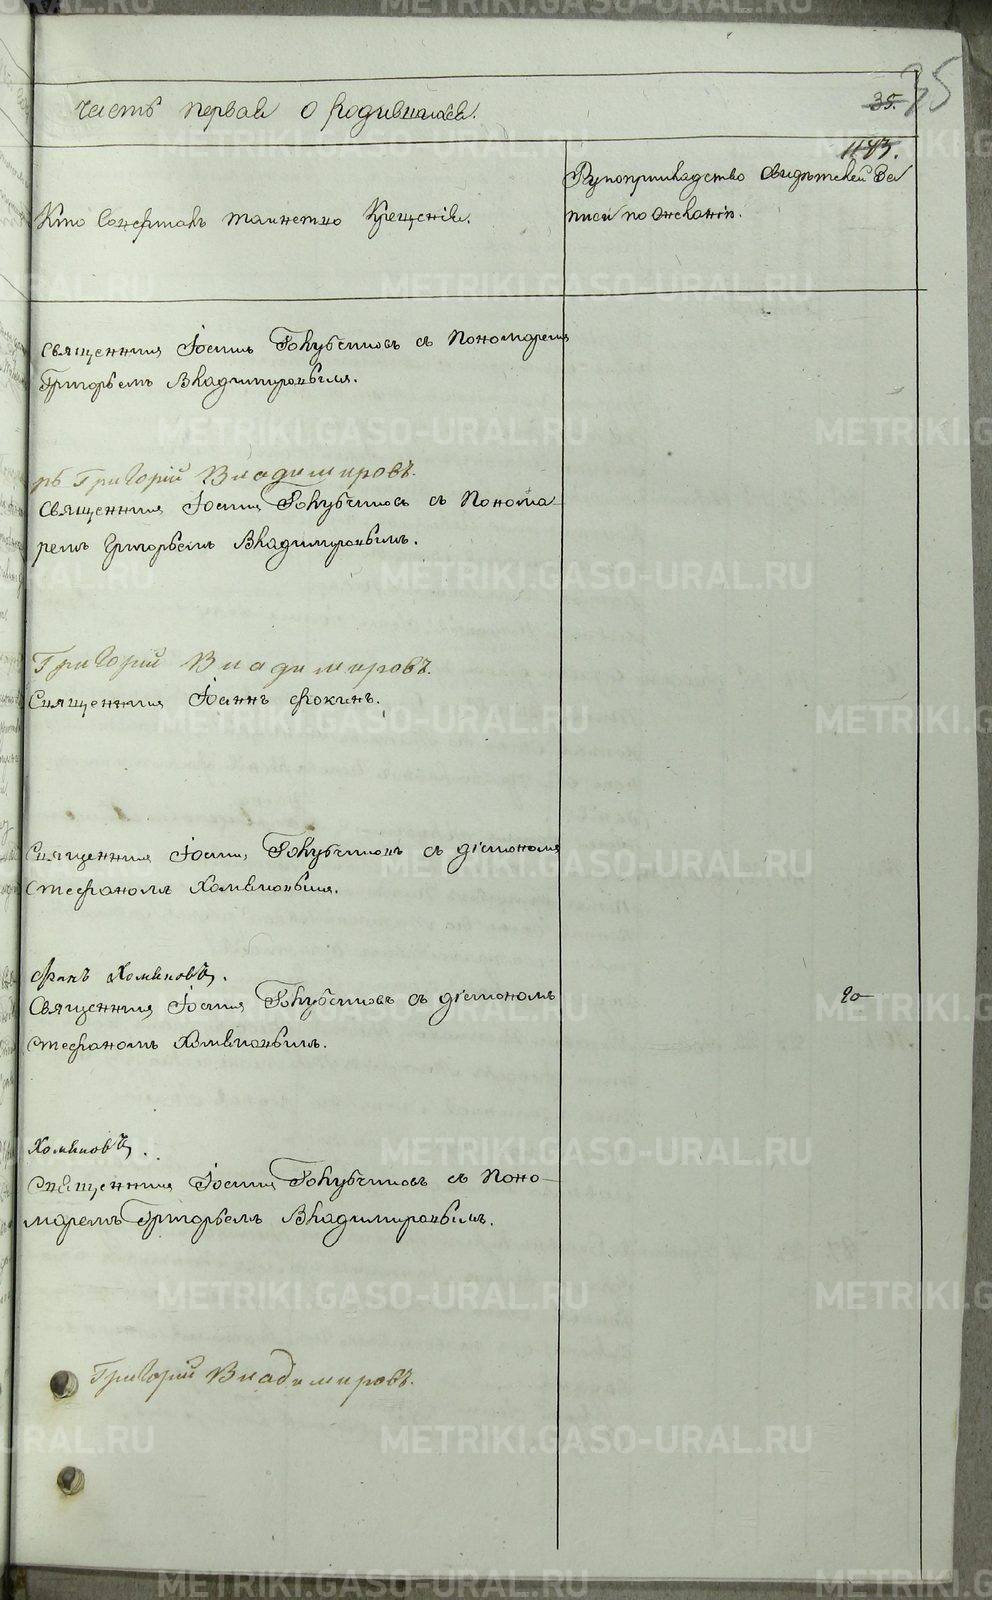 Часть первая о родившихся.
35. 35
1183.
Кто совершалъ таинство крещенія.
Рукоприкладство свидѣтелей за-
писи по желанію.
Священникъ Іоаннъ Голубчиковъ съ Пономаремъ
Григорьемъ Владимировымъ.
ръ Григорій Владимировъ.
Священникъ Іоаннъ Голубчиковъ съ Понома-
ремъ Григорьемъ Владимировымъ.
Григорий Владимировъ.
Священникъ Іоаннъ Фокинъ.
Священникъ Іоаннъ Голубчиковъ съ діакономъ
Стефаномъ
фанъ
Священникъ Іоаннъ Голубчиковъ съ діакономъ
Стефаномъ
Священникъ Іоаннъ Голубчиковъ съ Поно-
маремъ Григорьемъ Владимировымъ.
Григорий Владимировъ.
METRIKI.GASO-URAL.RU